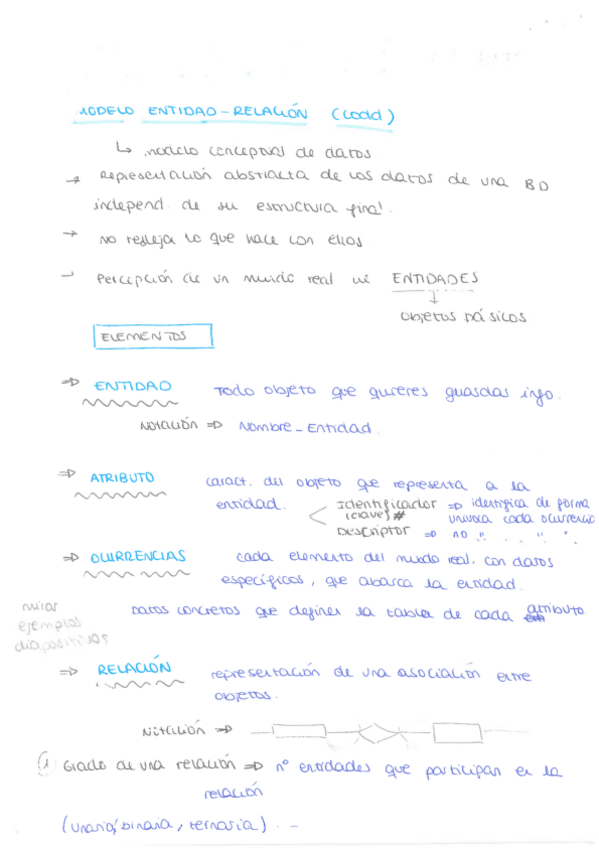 MODELO ENTIDAD-RELACIÓN (Codd)
↳ modelo conceptual de datos
→ Representación abstracta de los datos de una BD
independ. de su estructura final.
→ no refleja lo que hace con ellos
→ Percepción de un mundo real de ENTIDADES
↓
objetos básicos
ELEMENTOS
⇒ ENTIDAD Todo objeto que quieres guardar info.
Notación ⇒ Nombre_Entidad.
⇒ ATRIBUTO caract. del objeto que representa a la
entidad. < Identificador ⇒ identifica de forma
(clave) # unívoca cada ocurrencia
Descriptor ⇒ no " . " , " .
⇒ OCURRENCIAS cada elemento del mundo real, con datos
específicos, que abarca la entidad.
mirar
ejemplos
diapositivas
Datos concretos que definen la tabla de cada atributo
⇒ RELACIÓN representación de una asociación entre
objetos.
Notación ⇒
Grado de una relación ⇒ nº entidades que participan en la
relación
(unaria, binaria, ternaria) . -